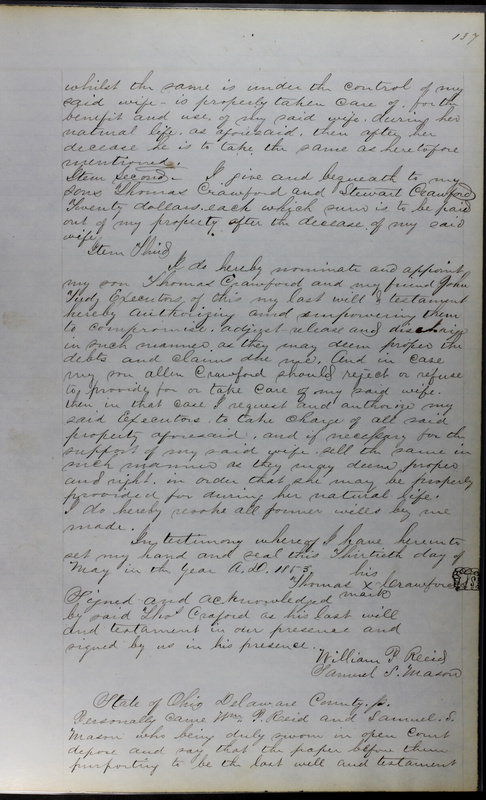 137
whilst the same is under the control of my
said wife - is properly taken care of. for the
benefit and use, of my said wife, during her
natural life. as aforesaid. then after her
decease he is to take the same as heretofore
mentioned.
Item Second. I give and bequeath to my
sons Thomas Crawford and Stewart Crawford
Twenty dollars. each which sum is to be paid
out of my property after the decease, of my said
wife,
Item Third
I do hereby nominate and appoint
my son Thomas Crawford and my friend John
Executors, of this my last will & testament
hereby authorizing and empowering them
to compromise. adjust release and discharge
in such manner as they may deem proper the
debts and claims due me. And in case
my son allen Crawford should reject or refuse
to provide for or take care of my said wife.
then in that case I request and authorize my
said Executors. to take charge of all said
property aforesaid, and if necessary for the
support of my said wife sell the same in
such manner as they may deem proper
and right. in order that she may be properly
provided for during her natural life.
I do hereby revoke all former wills by me
made.
In testimony whereof I have hereunto
set my hand and seal this Thirtieth day of
May in the year A.D. 1853.
his
Thomas X Crawford
mark
Signed and acknowledged
by said Thos Craford as his last will
and testament in our presence and
signed by us in his presence.
William P. Reid
Samuel S. Mason
State of Ohio Delaware County, ss.
Personally came Wm. P. Reid and Samuel. S.
Mason who being duly sworn in open court
depose and say that the paper before them
purporting to be the last will and testament